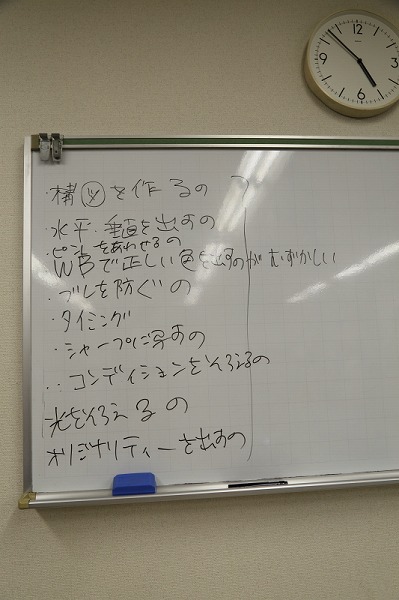 12
3
6
9
・構図を作るの
水平・垂直を出すの
・ピントをあわせるの
・WBで正しい色を出すのが むずかしい
・ブレを防ぐの
・タイミング
・シャープに写すの
・・コンディションをそろえるの
光をそろえるの
オリジナリティーを出すの